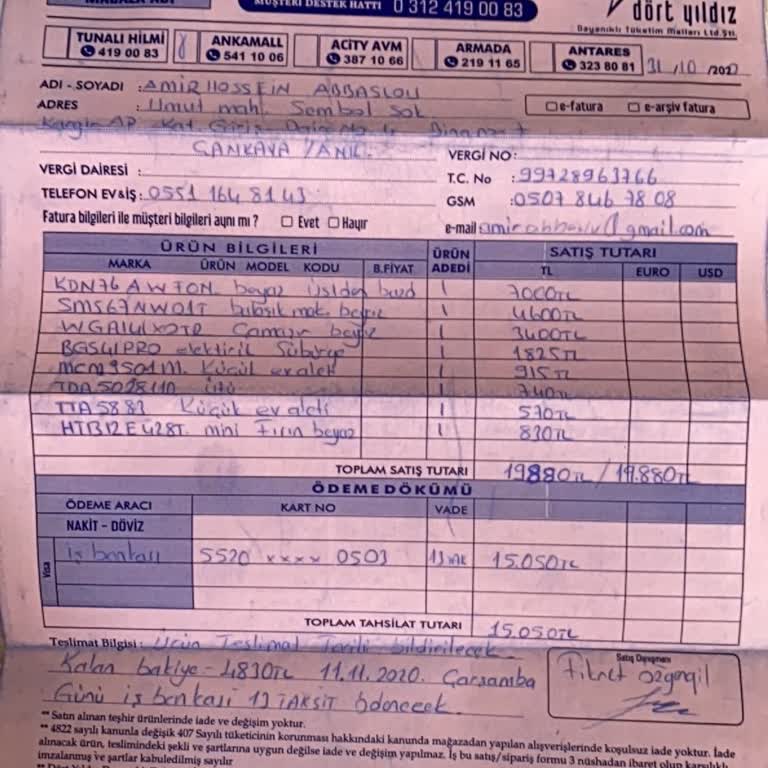 MÜŞTERİ DESTEK HATTI 0 312 419 00 83
dört yıldız
Dayanıklı Tüketim Malları Ltd.Şti.
TUNALI HİLMİ 419 00 83
ANKAMALL 541 10 06
ACITY AVM 387 10 66
ARMADA 219 11 65
ANTARES 323 80 81
31/10/202
ADI - SOYADI : AMIRHOSSEIN ABBASLOU
ADRES : Umut mah. Sembol Sok
e-fatura e-arşiv fatura
ÇANKAYA / ANK.
VERGİ DAİRESİ :
VERGİ NO:
T.C. No : 99728963766
TELEFON EV&İŞ: 0551 164 81 43
GSM : 0507 846 78 08
Fatura bilgileri ile müşteri bilgileri aynı mı ? Evet Hayır
e-mail @gmail.com
ÜRÜN BİLGİLERİ ÜRÜN ADEDİ SATIŞ TUTARI
MARKA ÜRÜN MODEL KODU B.FİYAT TL EURO USD
KDN76AW70N beyaz üstden buzd 1 7000TL
SMS67NW01T bulaşık mak. beyaz 1 4600TL
Çamaşır beyaz 1 3400TL
BGS41PRO elektirik Süpürge 1 1825TL
MCM3501M. Küçük ev aleti 1 915TL
TDA5028110 ütü 740TL
TTA5883 Küçük ev aleti 1 570TL
mini Fırın beyaz 1 830TL
TOPLAM SATIŞ TUTARI 19880TL / 19.880TL
ÖDEME DÖKÜMÜ
ÖDEME ARACI KART NO VADE
NAKİT - DÖVİZ
Visa
iş bankası 5520 xxxx 0503 15.050TL
TOPLAM TAHSİLAT TUTARI 15.050TL
Teslimat Bilgisi : Ürün Teslimat Tarihi bildirilecek
Kalan bakiye - 4830TL 11.11.2020 Çarşamba
Günü iş bankası TAKSİT ödenecek
Satış Danışmanı
Fikret
** Satın alınan teşhir ürünlerinde iade ve değişim yoktur.
** 4822 sayılı kanunla değişik 407 Sayılı tüketicinin korunması hakkındaki kanunda mağazadan yapılan alışverişlerinde koşulsuz iade yoktur. İade
alınacak ürün, teslimindeki şekli ve şartlarına uygun değilse iade ve değişim yapılmaz. İş bu satış/sipariş formu 3 nüshadan ibaret olup karşılıklı
imzalanmış ve şartlar kabuledilmiş sayılır